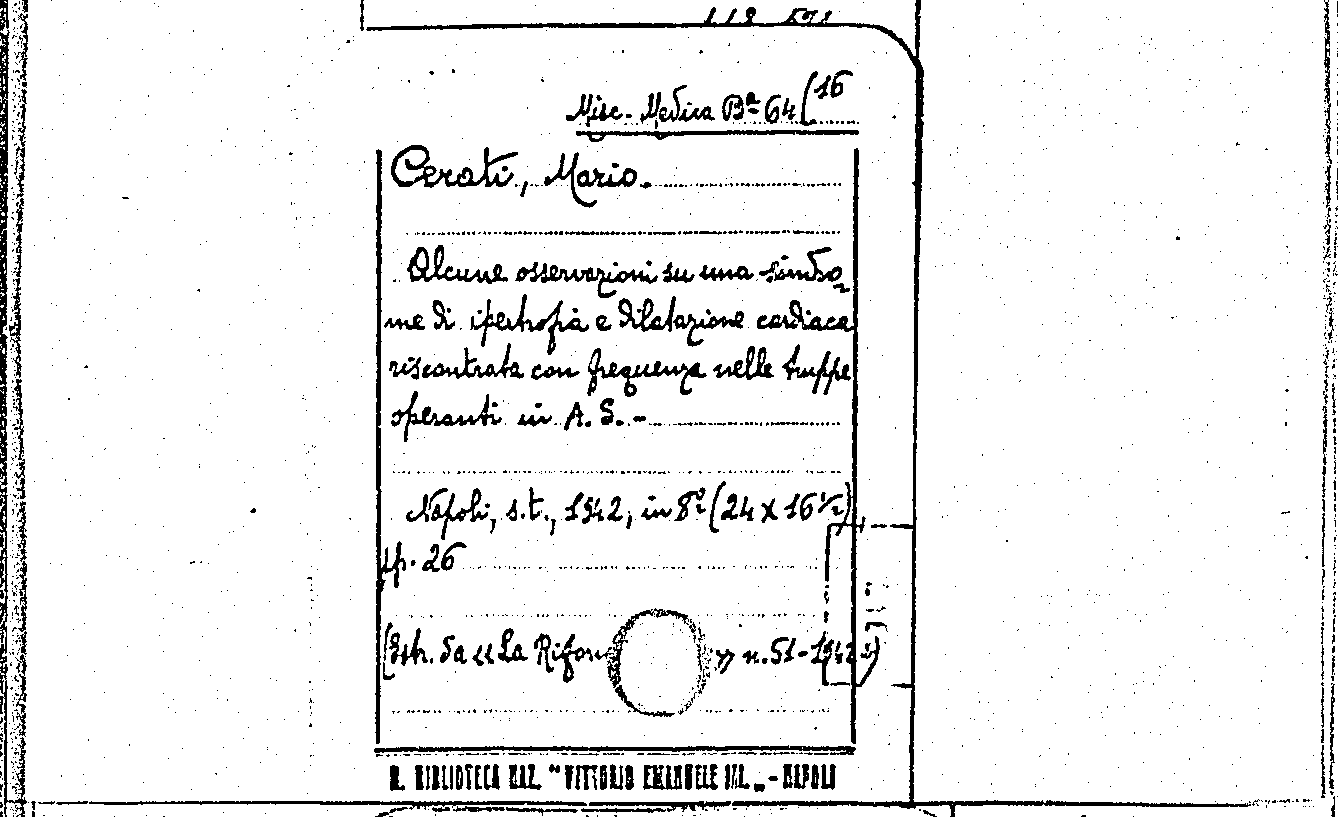 Misc. Medica Bª 64 (16
Cerati, Mario.
Alcune osservazioni su una sindro-
me di ipertrofia e dilatazione cardiaca
riscontrata con frequenza nelle truppe
operanti in A. S. -
Napoli, s.t., 1942, in 8º (24 x 16 ½)
pp. 26
(Estr. da «La Rifor » n. 51 - 1942)
R. BIBLIOTECA NAZ. "VITTORIO EMANUELE III. „ - NAPOLI